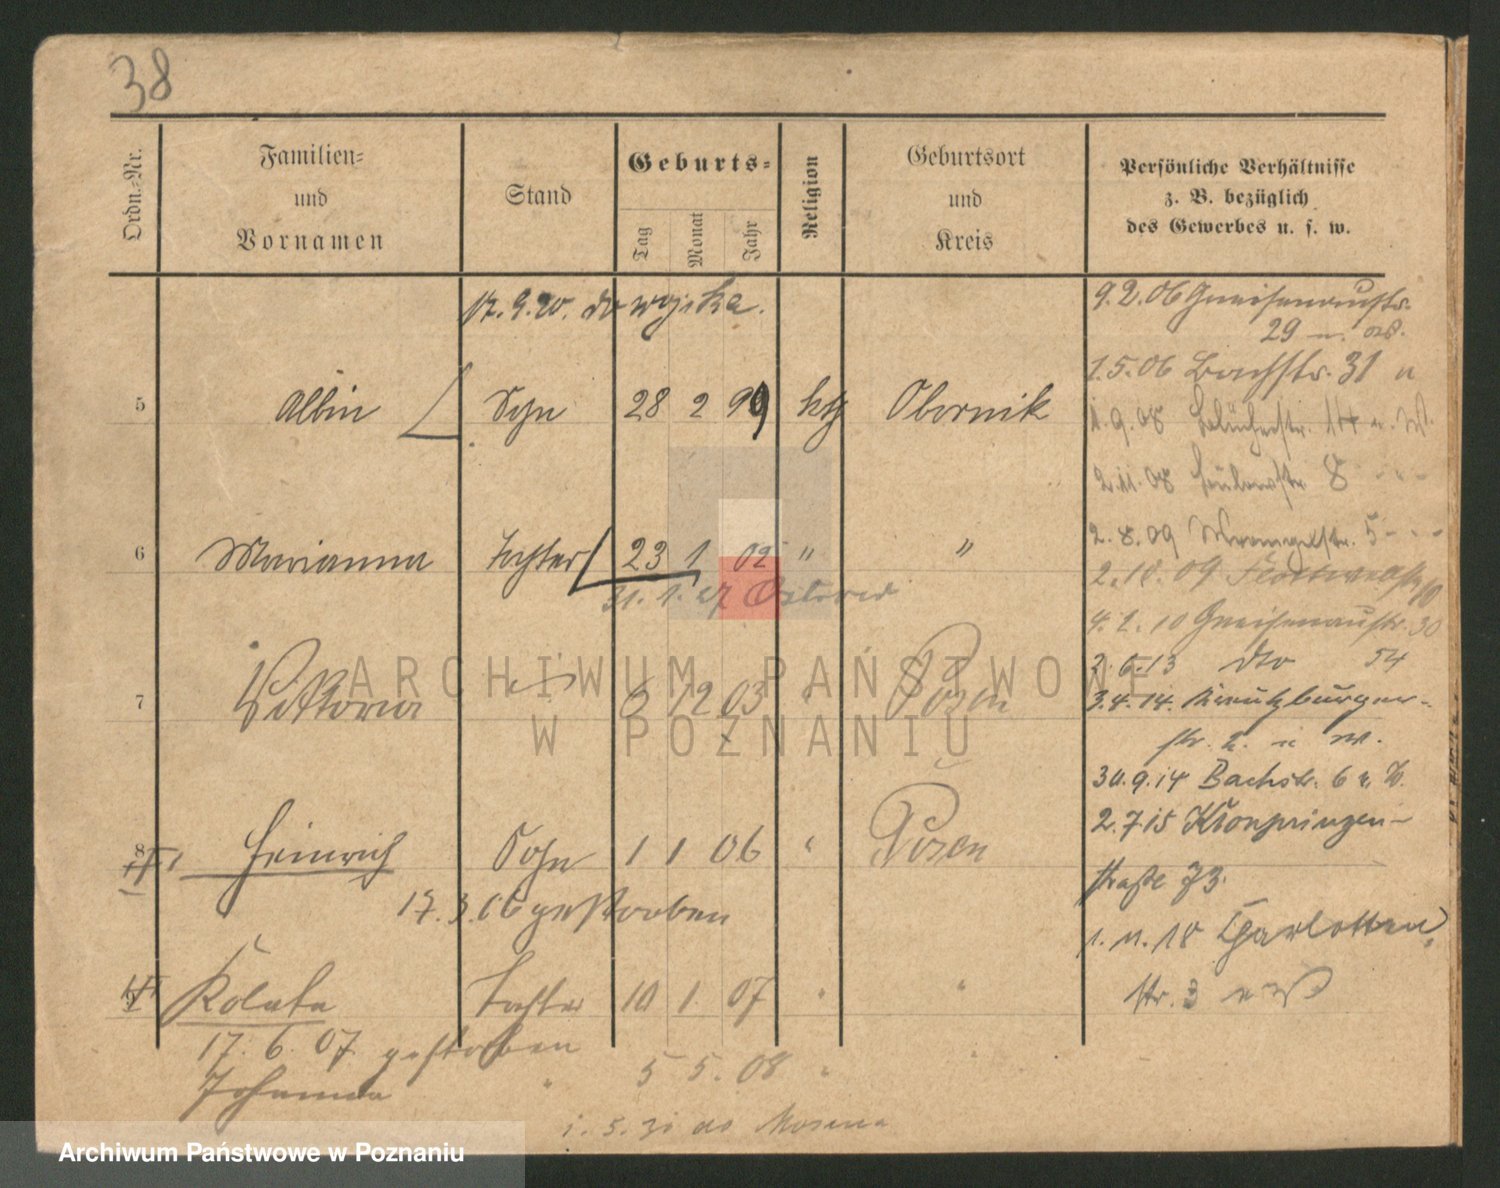 38
Ordn.-Nr.
Familien-
und
Vornamen
Stand
Geburts-
Tag
Monat
Jahr
Religion
Geburtsort
und
Kreis
Persönliche Verhältnisse
z. B. bezüglich
des Gewerbes u. s. w.
17. 9. 20. do wojska.
5 Albin Sohn 28 2 99 kth Obornik
6 Marianna Tochter 23 1 02 " "
31. 1. 27
7 Viktoria " 6 12 03 " Posen
8 Heinrich Sohn 1 1 06 " Posen
17. 3. 06 gestorben
Tochter 10 1. 07 " "
17. 6. 07 gestorben
Johanna " 5 5. 08 "
9. 2. 06 Gneisenaustr.
29
1. 5. 06 Bachstr. 31 u
1. 9. 08 Blücherstr.
2. 11. 08 8 " "
2. 8. 09 Wrangelstr. 5 - - -
2. 10. 09 Flottwellstr.
4. 2. 10 Gneisenaustr. 30
2. 6. 13 dto 54
3. 4. 14. Kreutzburger-
str. 2.
30. 9. 14 Bachstr. 6
2. 7 15 Kronprinzen-
straße 73.
1. 11. 18 Charlotten
str. 3
ARCHIWUM PAŃSTWOWE
W POZNANIU
Archiwum Państwowe w Poznaniu